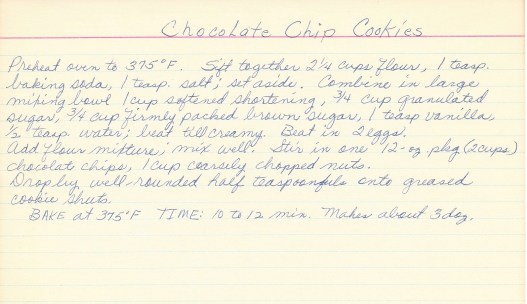 Chocolate Chip Cookies
Preheat oven to 375°F. Sift together 2¼ cups flour, 1 teasp.
baking soda, 1 teasp. salt; set aside. Combine in large
mixing bowl 1 cup softened shortening, ¾ cup granulated
sugar, ¾ cup firmly packed brown sugar, 1 teasp vanilla,
½ teasp. water; beat till creamy. Beat in 2 eggs.
Add flour mixture; mix well. Stir in one 12-oz. pkg (2 cups)
chocolate chips, 1 cup coarsely chopped nuts.
Drop by well-rounded half teaspoonfuls onto greased
cookie sheets.
BAKE at 375°F TIME: 10 to 12 min. Makes about 3 doz.